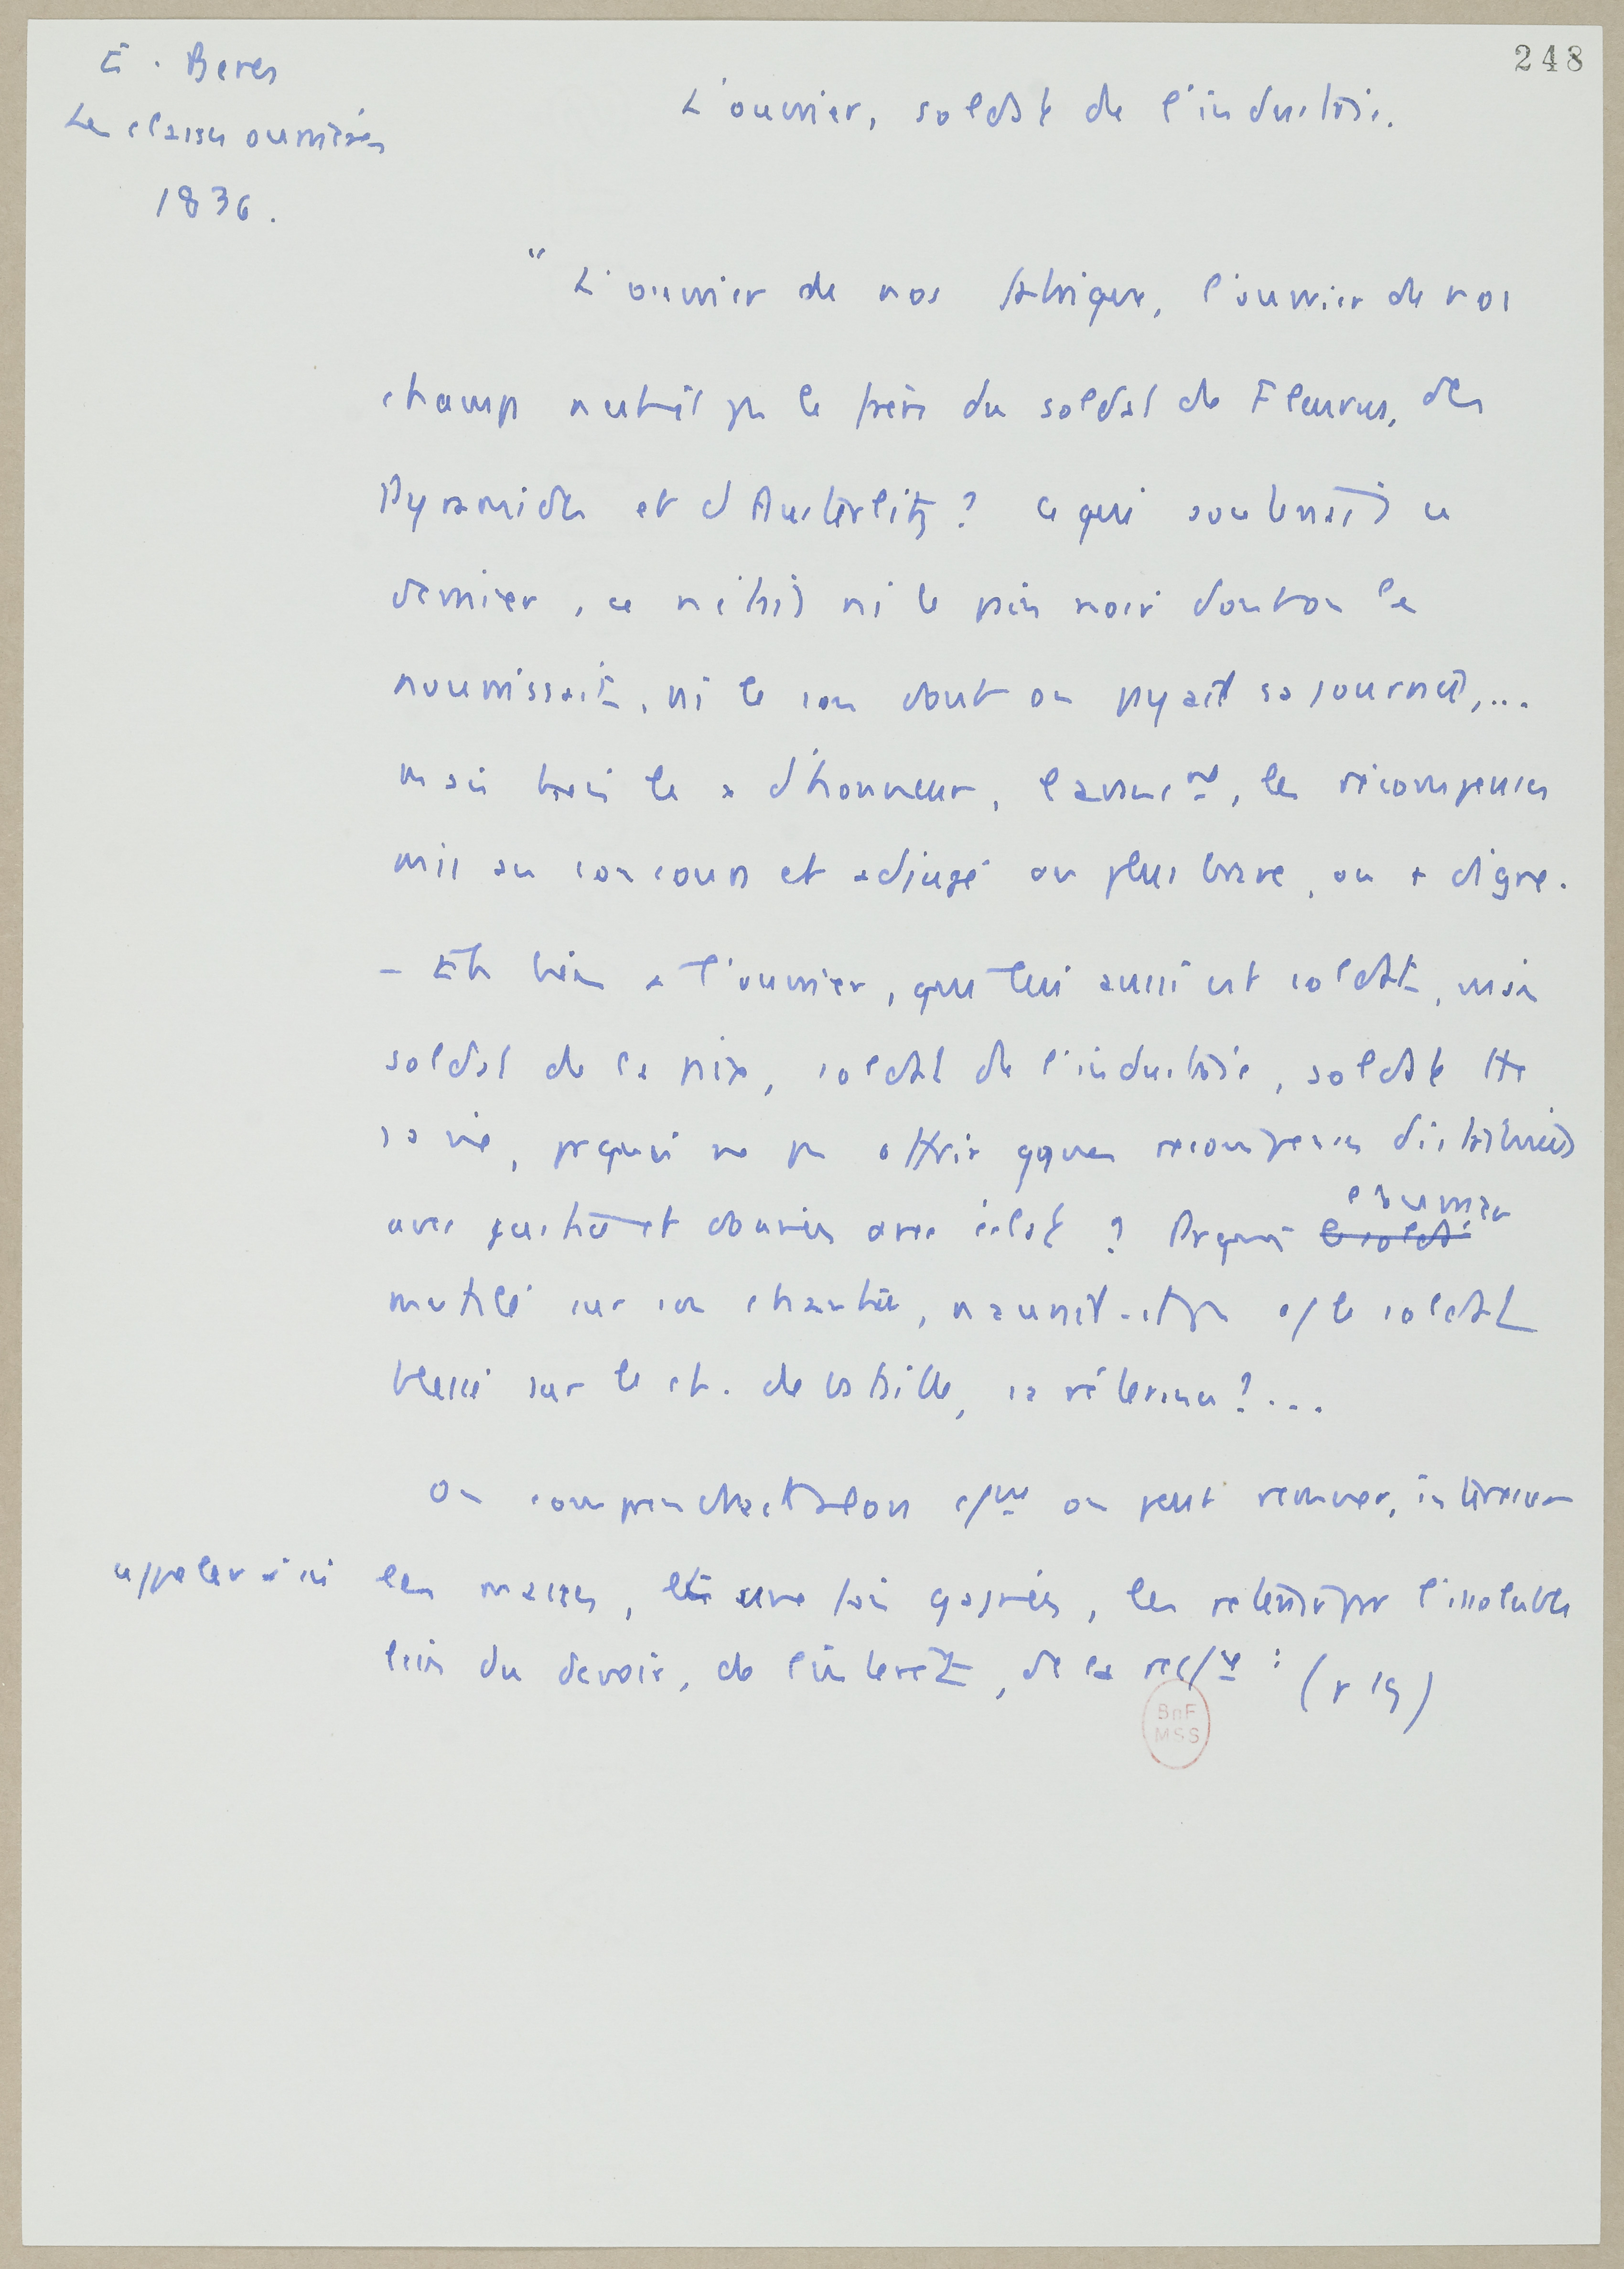 248
E. Beres
Les classes ouvrières
1836.
L'ouvrier, soldat de l'industrie.
" L'ouvrier de nos fabriques, l'ouvrier de nos
champs n'est-il pas le frère du soldat de Fleurus, des
Pyramides et d'Austerlitz ? Ce qui soutenait ce
dernier, ce n'était ni le pain noir dont on le
nourrissait, ni le sou dont on payait sa journée, ...
mais bien la x d'honneur, l'avancmt, les récompenses
mis au concours et adjugé au plus brave, au + digne.
- Eh bien à l'ouvrier, qui lui aussi est soldat, mais
soldat de la paix, soldat de l'industrie, soldat tte
sa vie, pquoi ne pas offrir qques récompenses distribuées
avec justice et données avec éclat ? Pquoi le soldat l'ouvrier
mutilé sur son chantier, n'aurait-il pas c/ le soldat
blessé sur le ch. de bataille, sa réserve ? ...
On comprendrait alors c/mt on peut remuer, intéresser
appeler à soi les masses, et une fois gagnées, les retenir par l'insoluble
lien du devoir, de l'intérêt, de la
BnF
MSS